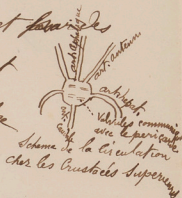 et
art. ophtalmique
art. antenn
art. hépat.
Valvules communiq
avec le péricarde
Schema de la Circulation
chez les Crustacés Superieurs